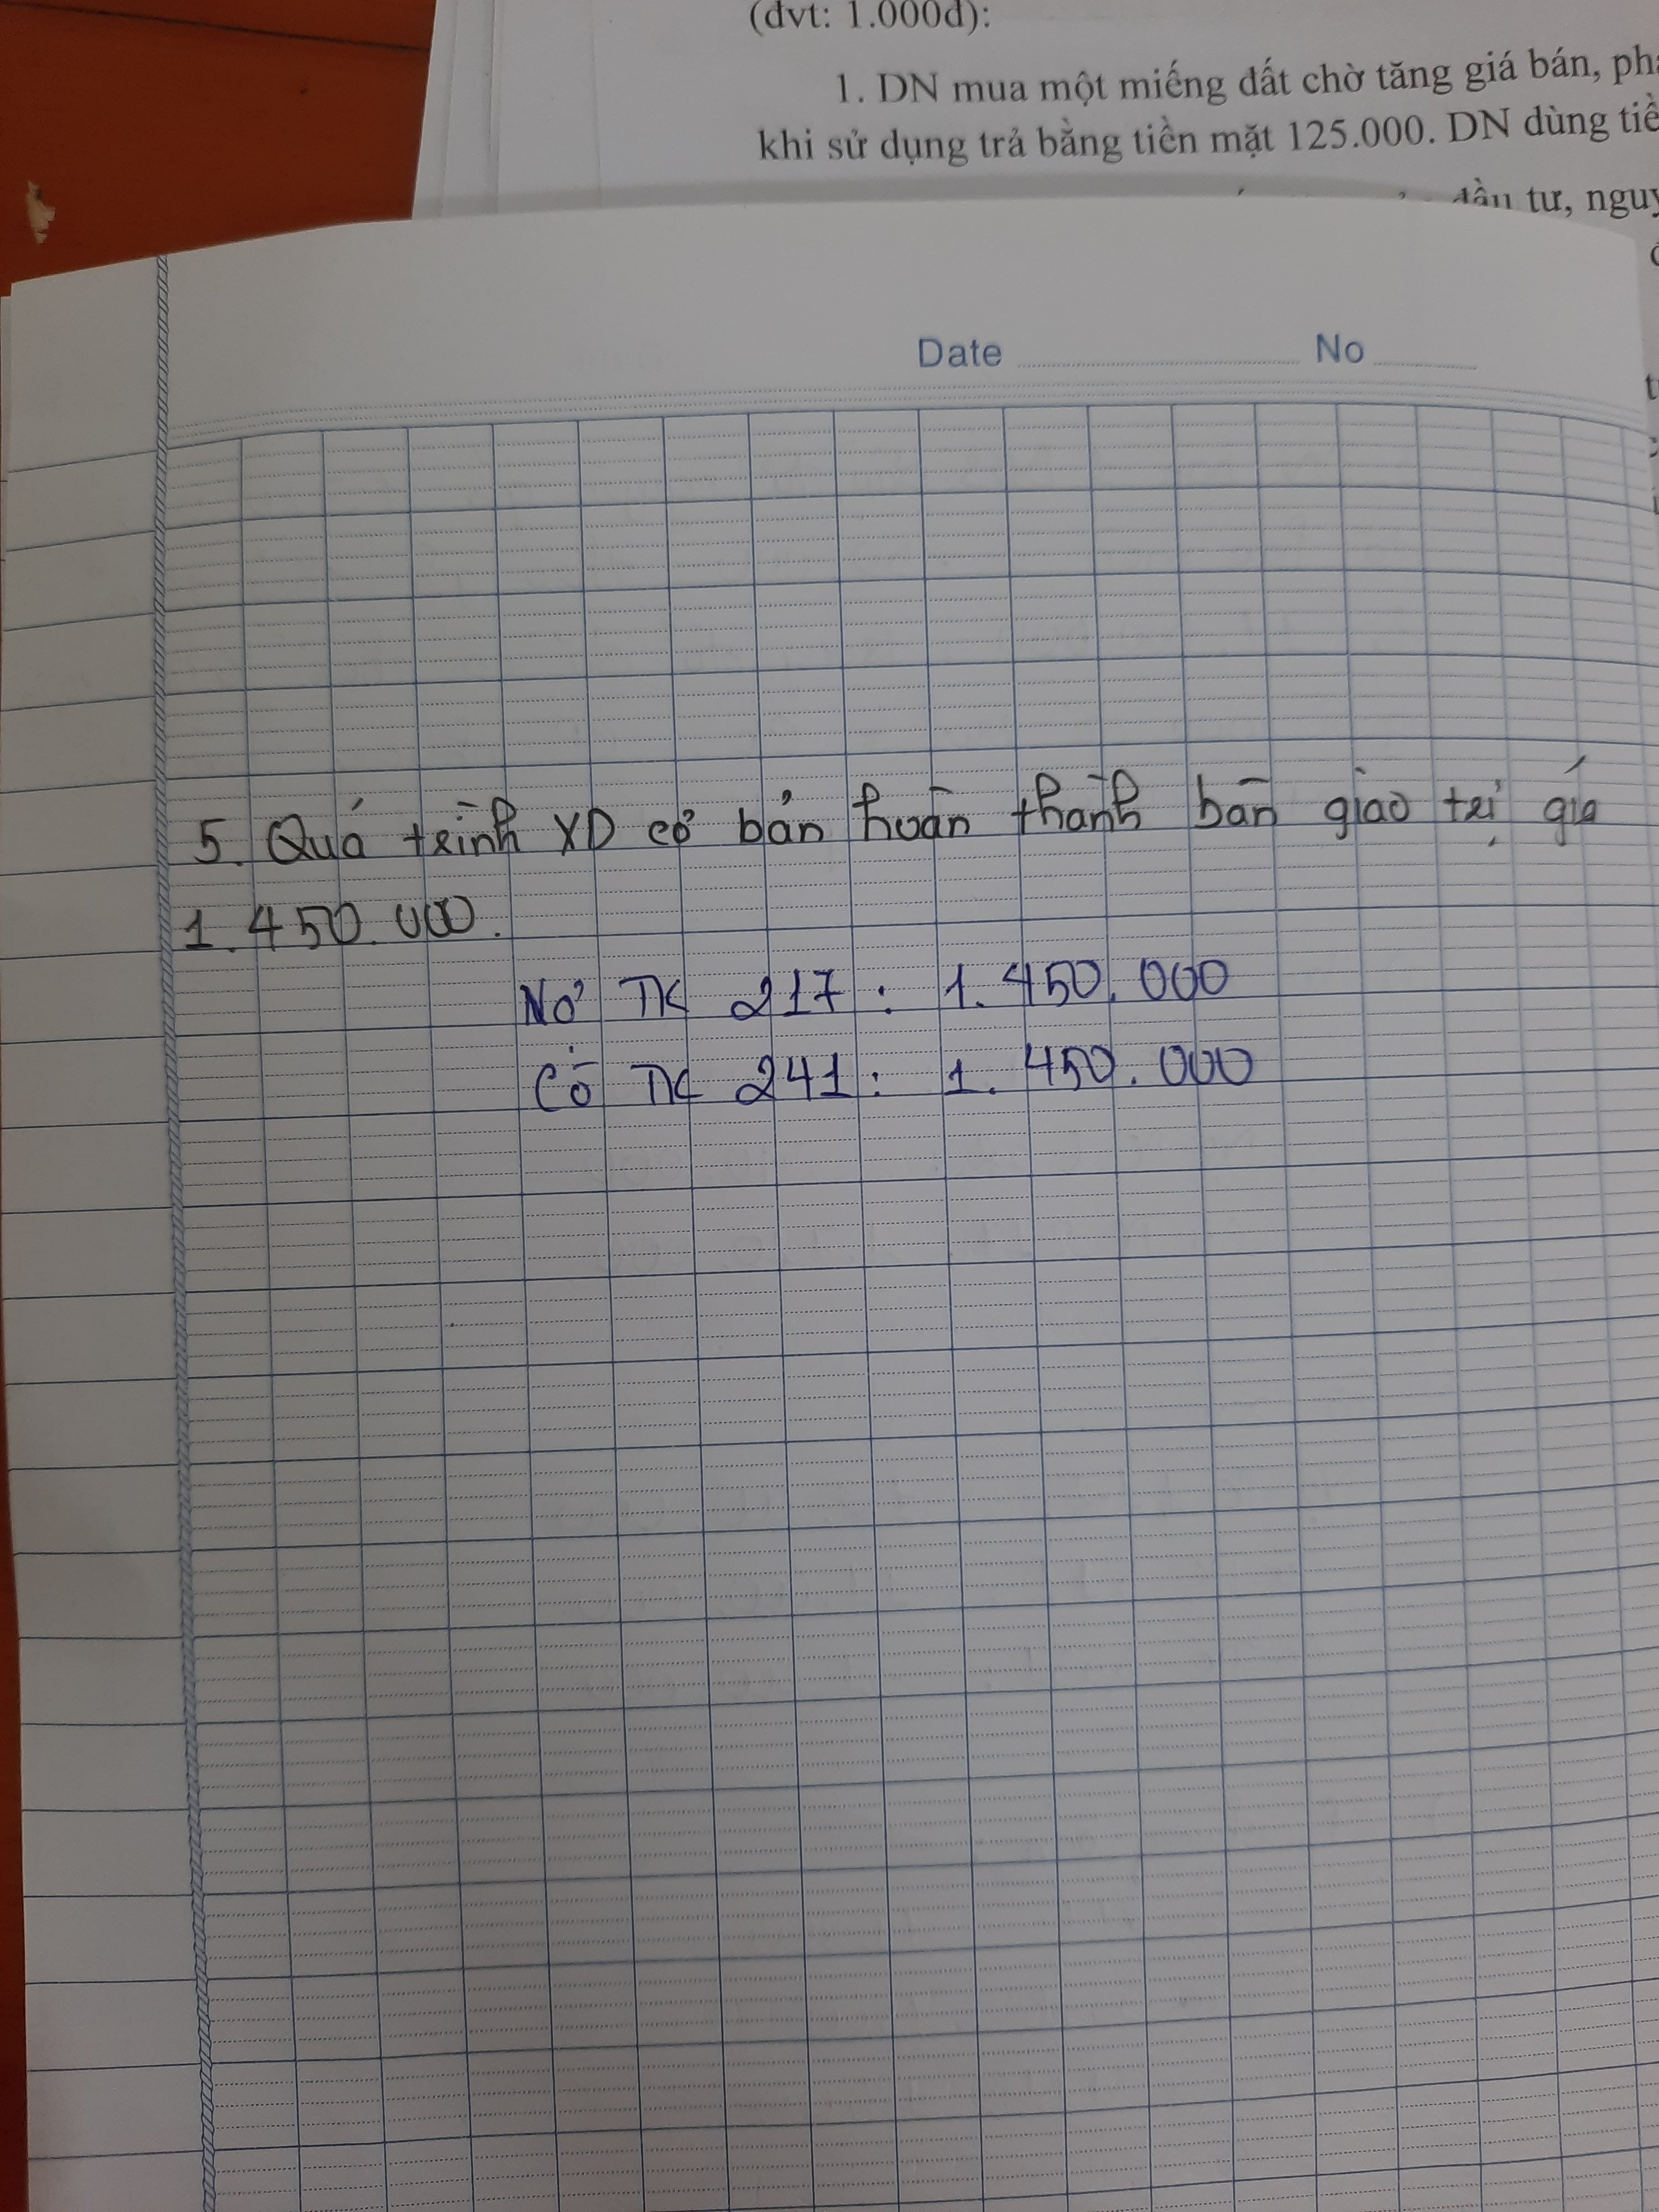 (đvt: 1.000đ):
1. DN mua một miếng đất chờ tăng giá bán,
khi sử dụng trả bằng tiền mặt 125.000. DN dùng
đầu tư,
Date No
5. Quá trình XD cơ bản hoàn thành bàn giao trị giá
1.450.000.
Nợ TK 217 : 1.450.000
Có TK 241 : 1.450.000